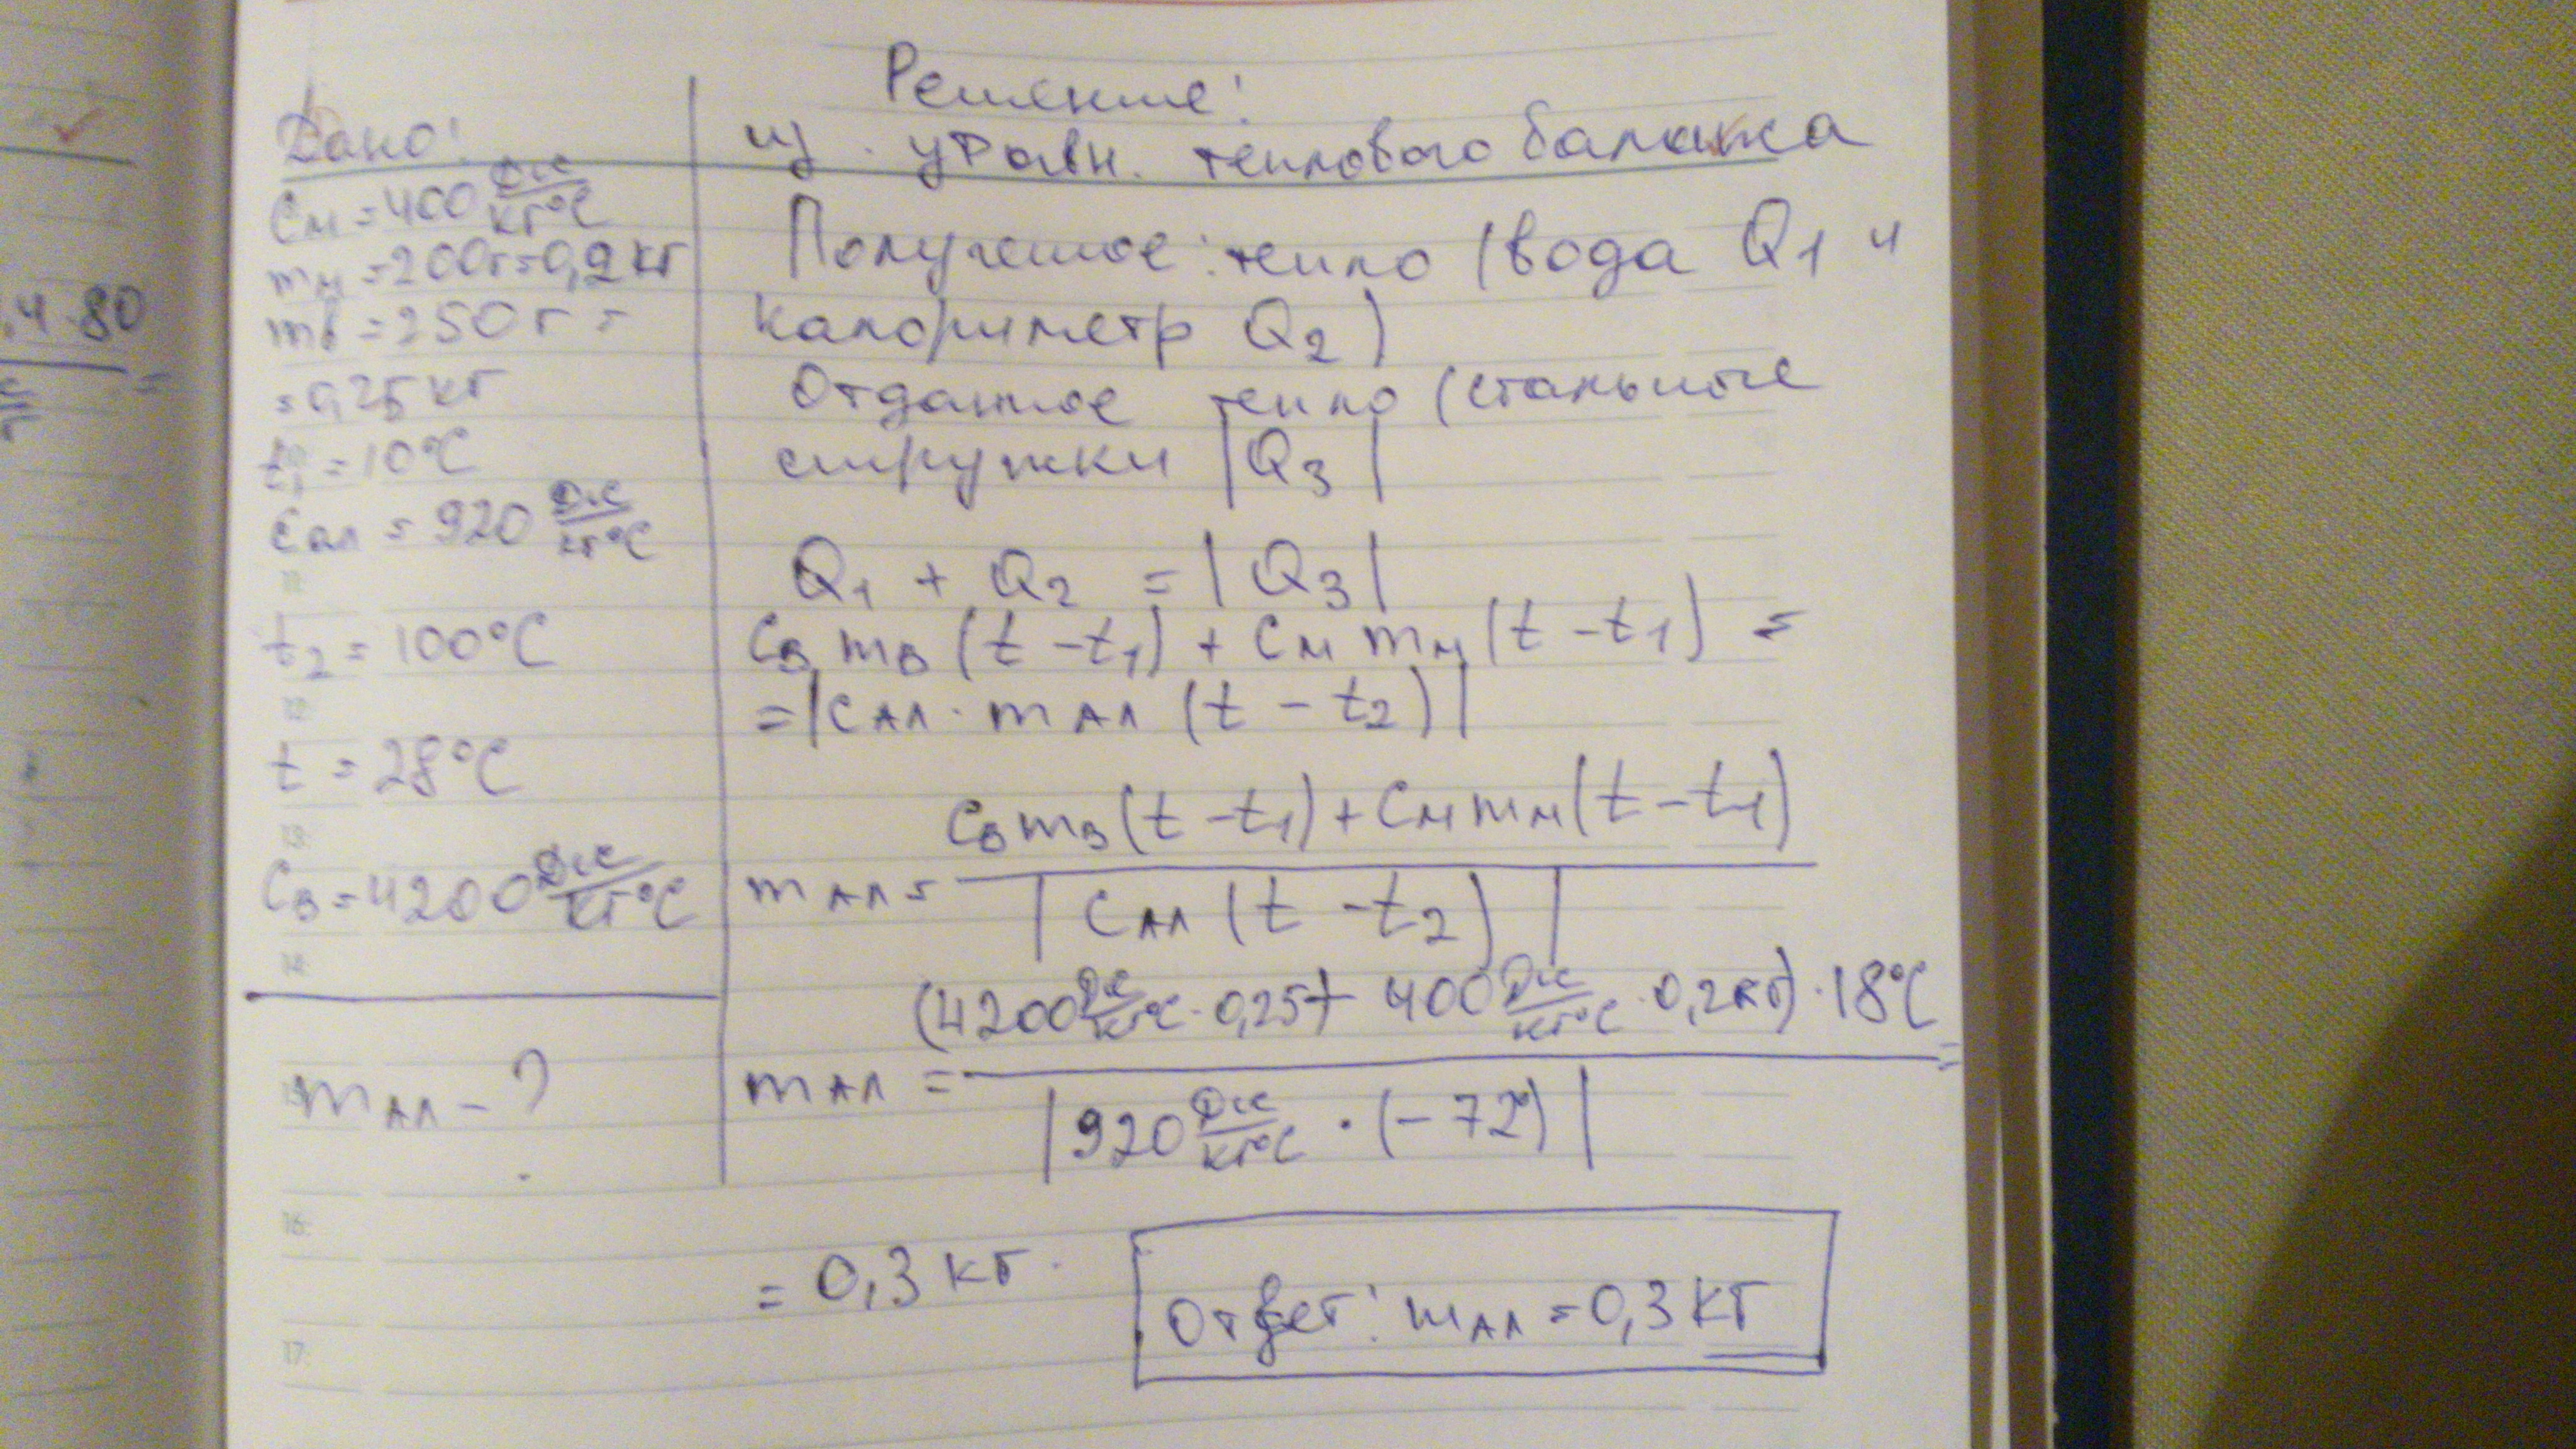 .4·80
=
Дано:
Cм = 400 Дж/кг°C
mм = 200г = 0,2 кг
mв = 250 г =
= 0,25 кг
t1 = 10°C
Cал = 920 Дж/кг°C
t2 = 100°C
t = 28°C
Cв = 4200 Дж/кг°C
mАл – ?
Решение:
из уравн. теплового баланса
Полученное: тепло (вода Q1 и
калориметр Q2)
Отданное тепло (стальные
стружки |Q3|
Q1 + Q2 = |Q3|
Cв mв (t – t1) + Cм mм (t – t1) =
= |CАл · mАл (t – t2)|
mАл = Cв mв (t – t1) + Cм mм (t – t1) / |CАл (t – t2)|
mАл = (4200 Дж/кг°C · 0,25 + 400 Дж/кг°C · 0,2 кг) · 18°C / |920 Дж/кг°C · (–72°)| =
= 0,3 кг.
Ответ: mАл = 0,3 кг
16
17